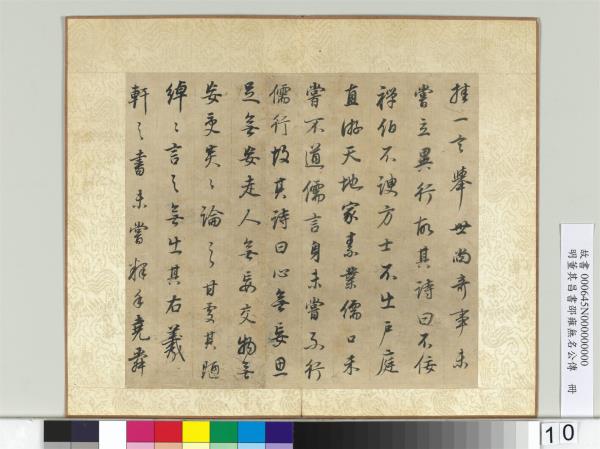 挂一言舉世尚奇事未
嘗立異行故其詩曰不佞
禪伯不諛方士不出戶庭
直游天地家素業儒口未
嘗不道儒言身未嘗不行
儒行故其詩曰心無妄思
足無妄走人無妄交物無
妄受炎〻論之甘處其陋
綽〻言之無出其右羲
軒之書未嘗釋手堯舜
故書000645N000000000
明董其昌書邵雍無名公傳 冊
10